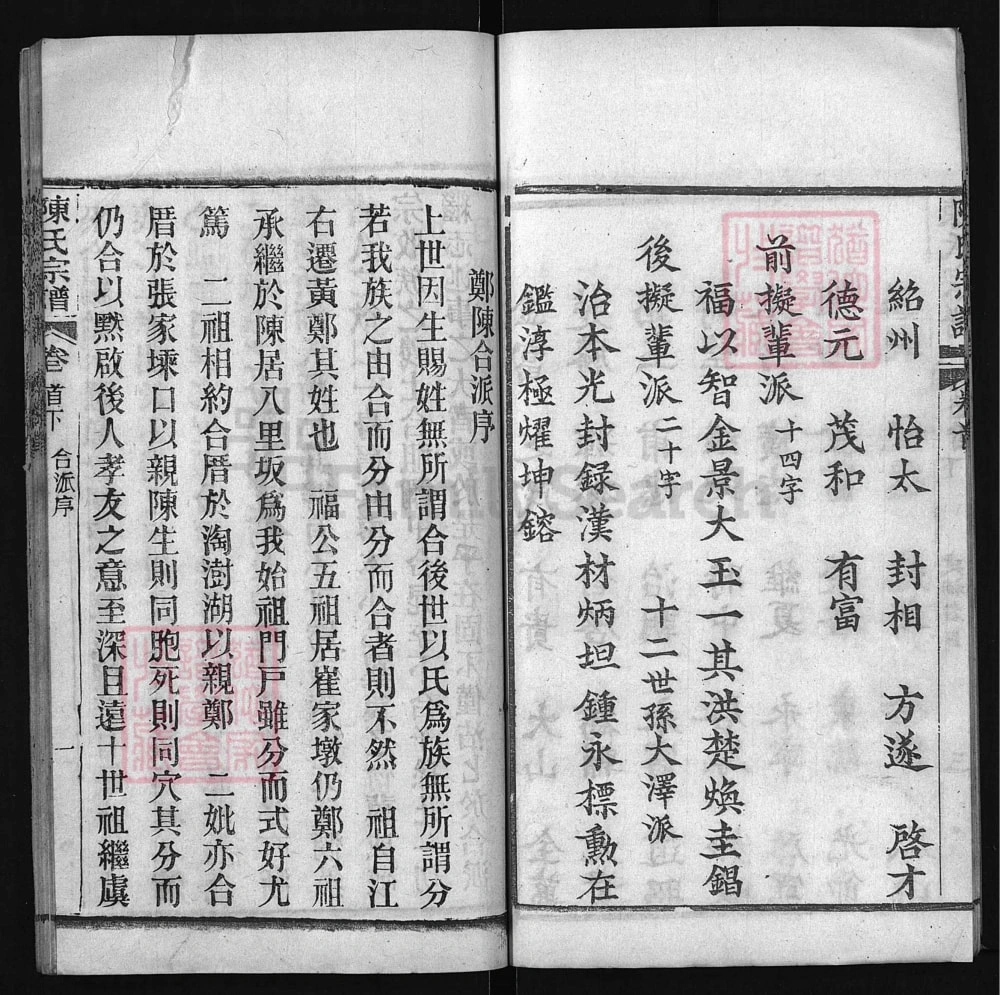 紹州　怡太　封相　方遂　啓才
德元　茂和　有富
前擬輩派十四字
福以智金景大玉一其洪楚煥圭錩
後擬輩派二十字　十二世孫大澤派
治本光封録漢材炳坦鍾永標勳在
鑑淳極燿坤鎔
鄭陳合派序
上世因生賜姓無所謂合後世以氏爲族無所謂分
若我族之由合而分由分而合者則不然　祖自江
右遷黃鄭其姓也　福公五祖居崔家墩仍鄭六祖
承繼於陳居八里坂爲我始祖門戸雖分而式好尤
篤　二祖相約合厝於淘澍湖以親鄭　二妣亦合
厝於張家塛口以親陳生則同胞死則同穴其分而
仍合以黙啟後人孝友之意至深且遠十世祖繼虞
陳氏宗譜
卷首下
合派序
一